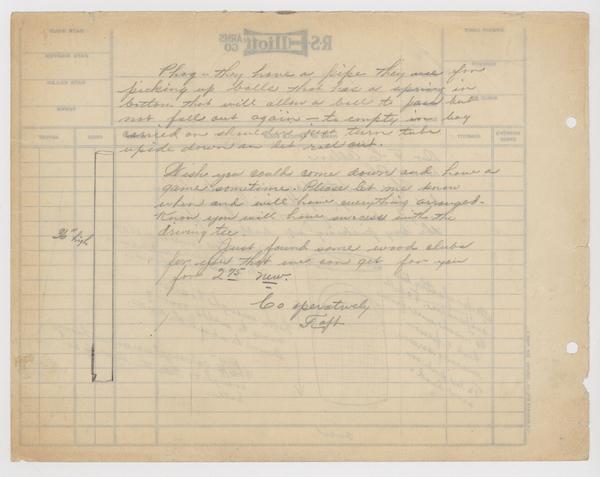 Phog - they have a pipe they use for
picking up balls that has a spring in
bottom that will allow a ball to pass but
not fall out again - to empty in bag
carried on shoulder just turn tube
upside down an let roll out.
Wish you could come down and have a
game sometime. Please let me know
when and will have everything arranged.
Know you will have success with the
driving tee.
Just found some wood clubs
for you that we can get for you
for 2.75 new.
Co operatively
Taft
36" high